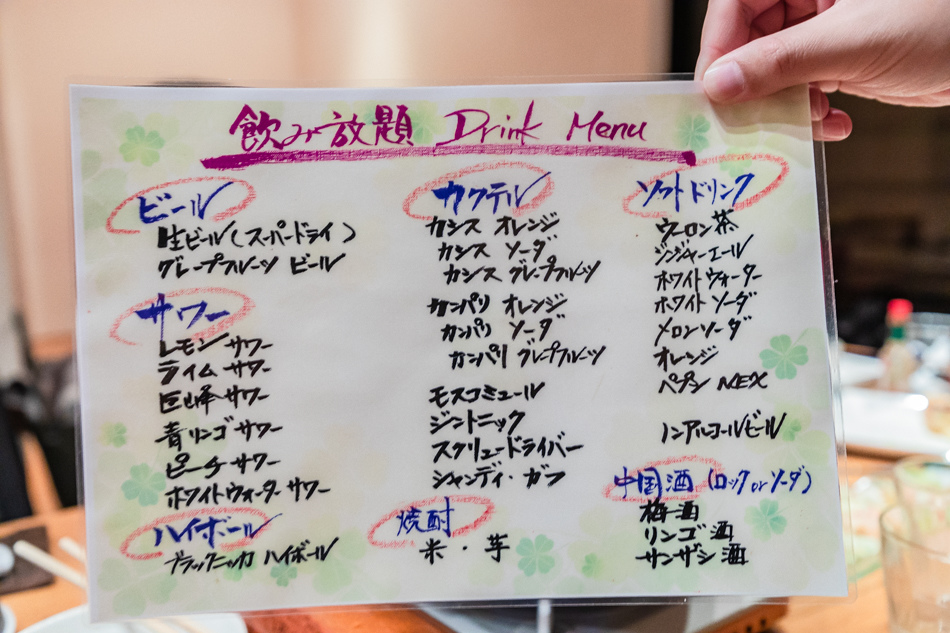 飲み放題 Drink Menu
ビール
生ビール(スーパードライ)
グレープフルーツ ビール
サワー
レモン サワー
ライム サワー
巨峰 サワー
青リンゴ サワー
ピーチ サワー
ホワイトウォーター サワー
ハイボール
ブラックニッカ ハイボール
カクテル
カシス オレンジ
カシス ソーダ
カシス グレープフルーツ
カンパリ オレンジ
カンパリ ソーダ
カンパリ グレープフルーツ
モスコミュール
ジントニック
スクリュードライバー
シャンディ・ガフ
焼酎
米・芋
ソフトドリンク
ウーロン茶
ジンジャーエール
ホワイトウォーター
ホワイトソーダ
メロンソーダ
オレンジ
ペプシ NEX
ノンアルコールビール
中国酒(ロック or ソーダ)
梅酒
リンゴ酒
サンザシ酒